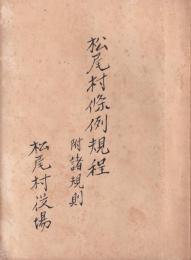 松尾村條例規程
附諸規則
松尾村役場